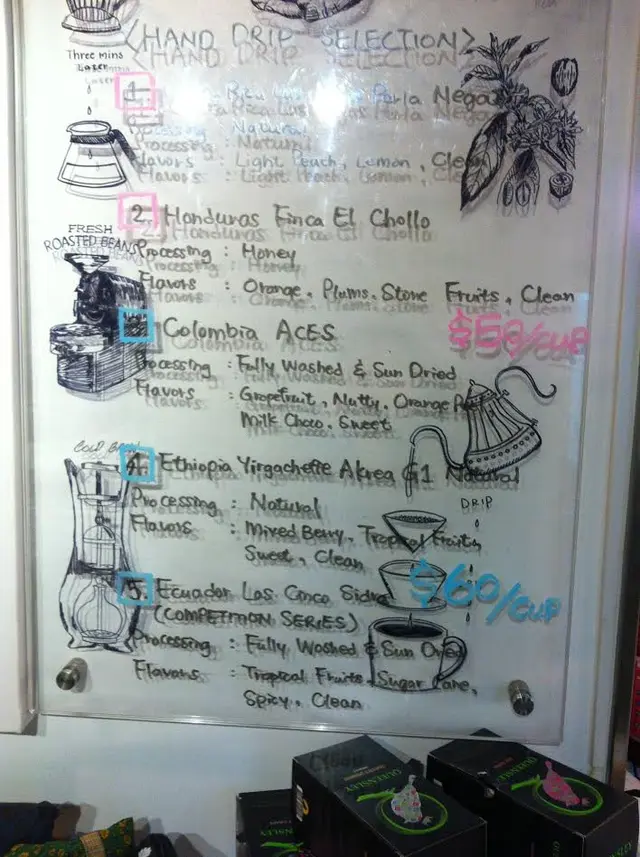 Three mins
Later
<HAND DRIP SELECTION>
1. Rica Las Perla Nega
Processing : Natural
Flavors : Light Peach, Lemon, Clean
2. Honduras Finca El Chollo
FRESH
ROASTED BEANS
Processing : Honey
Flavors : Orange, Plums, Stone Fruits, Clean
Colombia ACES
$58/CUP
Processing : Fully Washed & Sun Dried
Flavors : Grapefruit, Nutty, Orange
Milk Choco, Sweet
COLD BREW
4. Ethiopia Yirgacheffe G1 Natural
DRIP
Processing : Natural
Flavors : Mixed Berry, Tropical Fruits,
Sweet, Clean
5. Ecuador Las Cinco Sidra
$60/CUP
(COMPETITION SERIES)
Processing : Fully Washed & Sun Dried
Flavors : Tropical Fruits, Sugar Cane,
Spicy, Clean
QUEENSLEY
QUEENSLEY